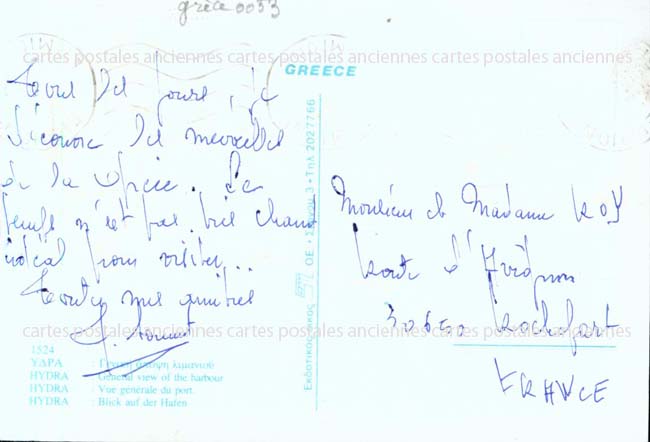 grèce0053
cartes postales anciennes cartes postales anciennes cartes postales anciennes
GREECE
Tous les jours, je
découvre les merveilles
de la Grèce. Le
temps n'est pas très chaud
idéal pour visiter...
Toutes mes amitiés
Monsieur et Madame ROY
Route d'Avignon
30650 Rochefort
FRANCE
cartes postales anciennes cartes postales anciennes cartes postales anciennes
1524
ΥΔΡΑ : Γενική άποψη λιμανιού
HYDRA : General view of the harbour
HYDRA : Vue générale du port.
HYDRA : Blick auf der Hafen
Εκδοτικός οίκος ΟΕ • 3 • Τηλ 2027766